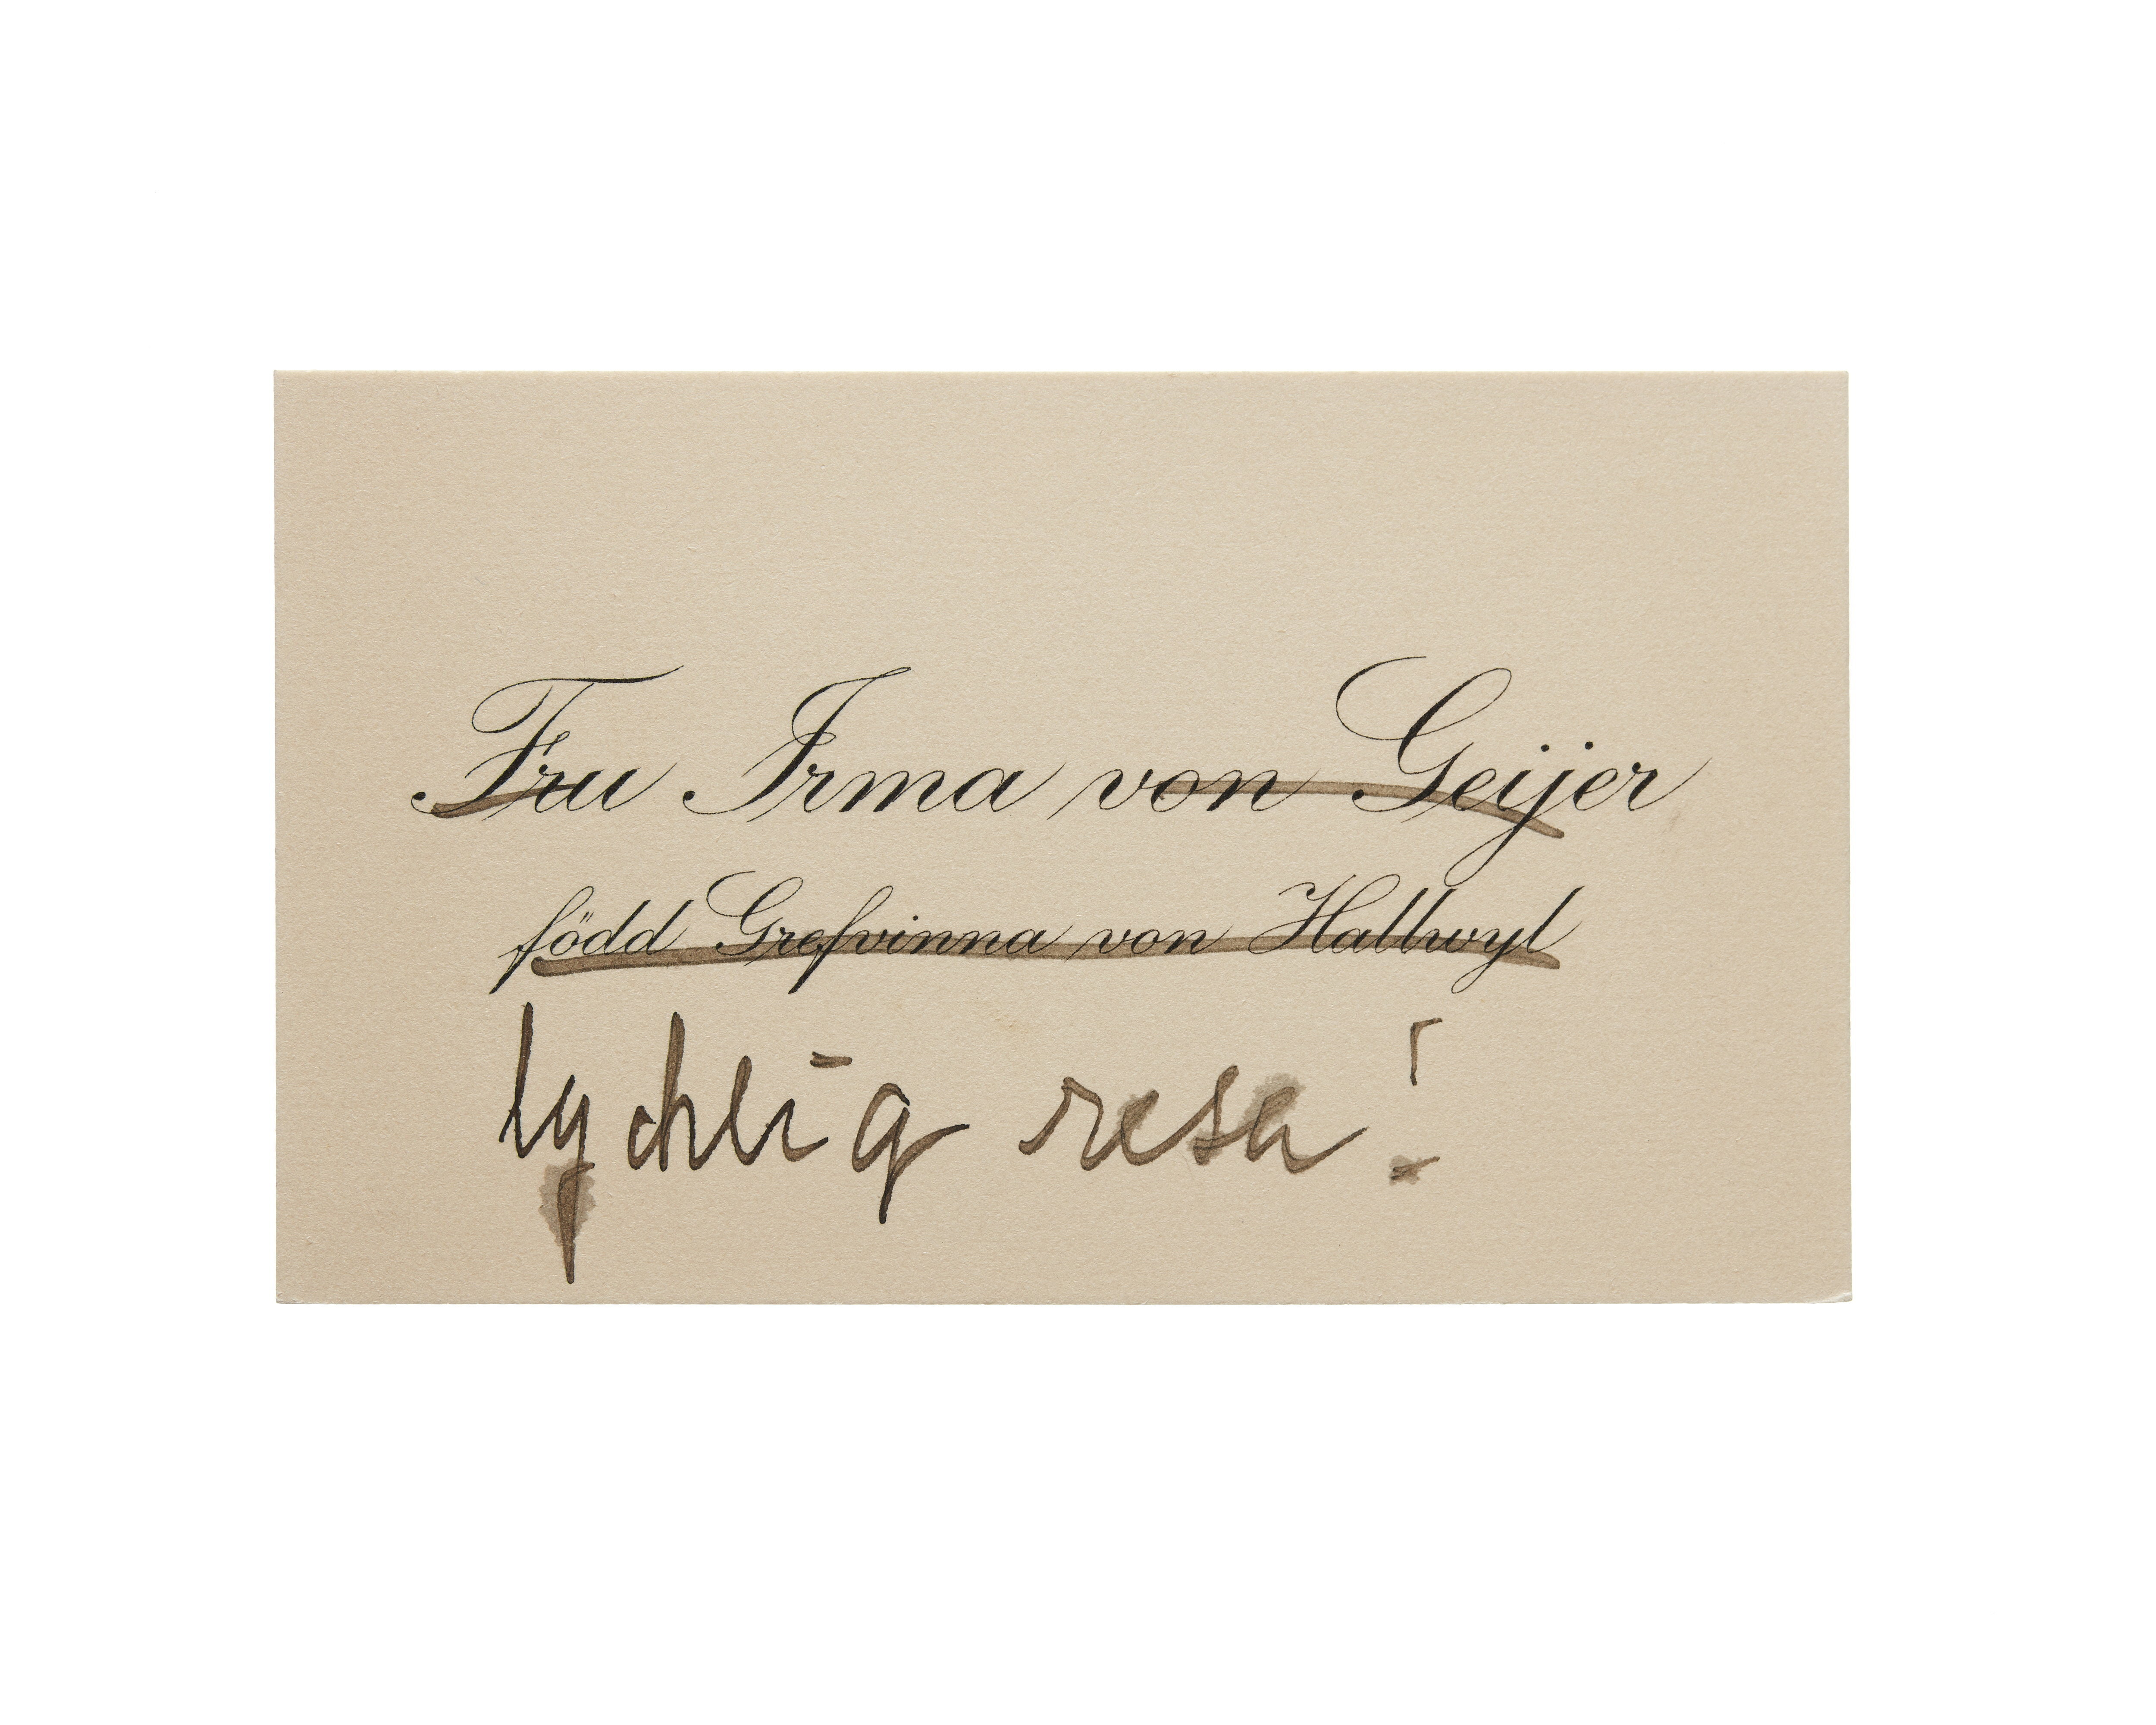 Fru Irma von Geijer
född Grefvinna von Hallwyl
lycklig resa!